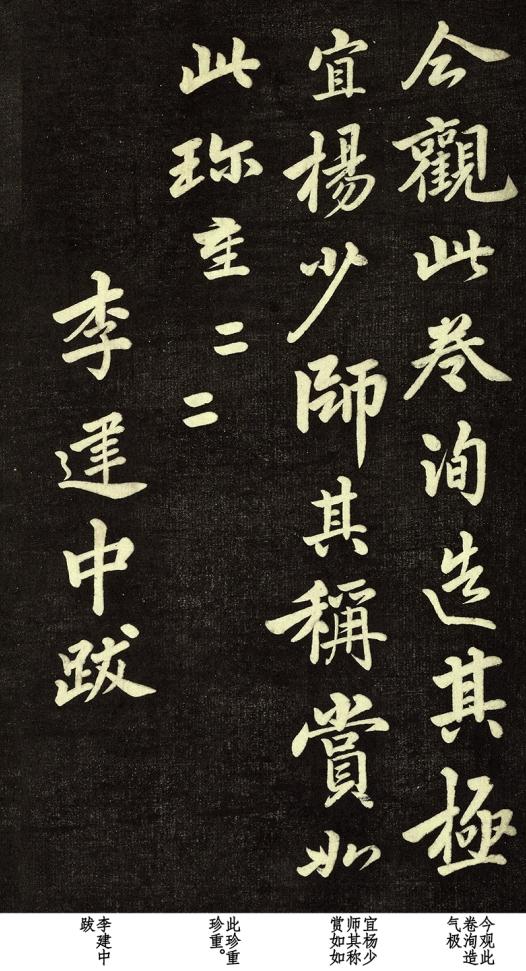 今觀此卷洵造其極
宜楊少師其稱賞如
此珎重二二
李建中跋
今观此
卷洵造
气极
宜杨少
师其称
赏如如
此珍重
珍重。
李建中
跋